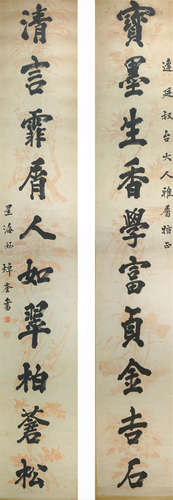 寶墨生香學富貞金吉石
達廷叔台大人雅屬指正
清言霏屑人如翠柏蒼松
星海
書